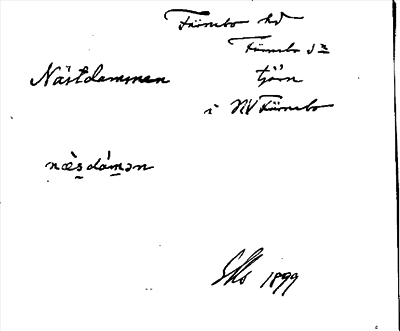 Färnebo hd
Färnebo sn
Nästdammen tjärn
i NV Färnebo
næ̀s̱dám̱ən
1899